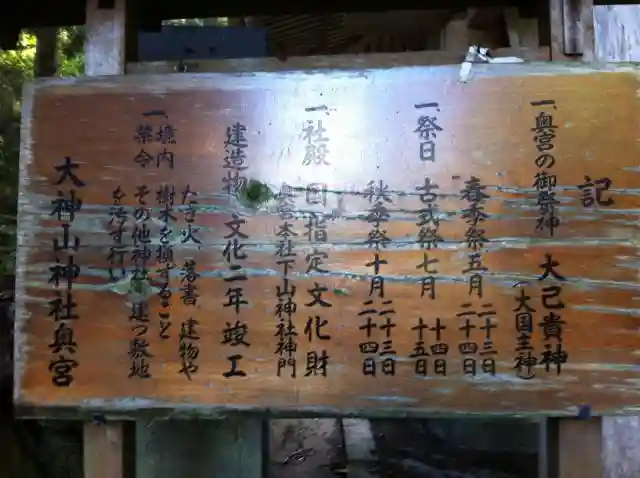 記
一、奥宮の御祭神 大己貴神
(大国主神)
一、祭日
春季祭五月 二十三日
二十四日
古式祭七月 十四日
十五日
秋季祭十月 二十三日
二十四日
一、社殿 国指定文化財
奥宮本社下山神社神門
建造物 文化二年竣工
一、境内
禁令
たき火 落書 建物や
樹木を損すること
その他神社 建つ敷地
を汚す行い
大神山神社奥宮